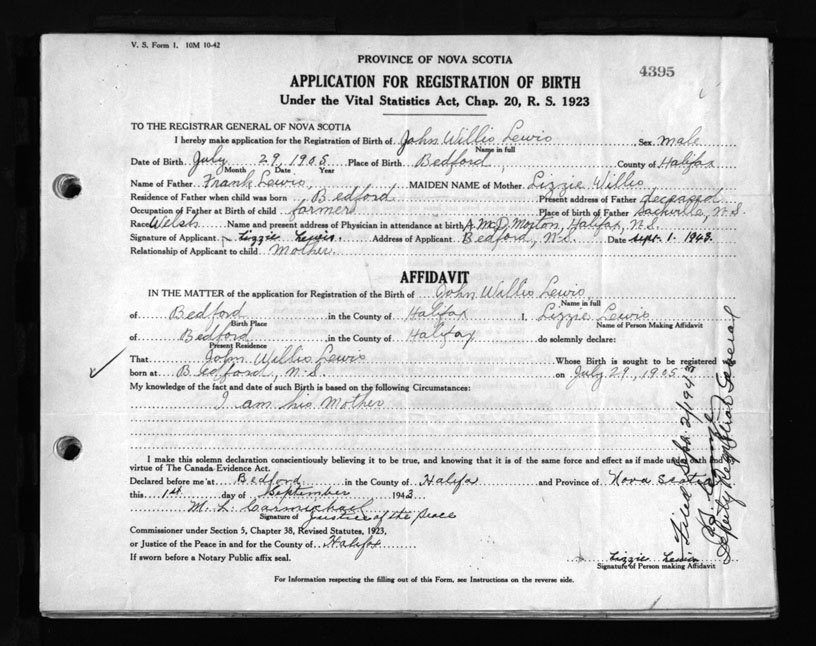 V. S. Form 1. 10M 10-42
PROVINCE OF NOVA SCOTIA
4395
APPLICATION FOR REGISTRATION OF BIRTH
Under the Vital Statistics Act, Chap. 20, R. S. 1923
TO THE REGISTRAR GENERAL OF NOVA SCOTIA
I hereby make application for the Registration of Birth of John Willis Lewis Sex male
Name in full
Date of Birth July 29, 1905 Place of Birth Bedford, County of Halifax
Month Date Year
Name of Father Frank Lewis, MAIDEN NAME of Mother Lizzie Willis
Residence of Father when child was born Bedford Present address of Father deceased
Occupation of Father at Birth of child farmer Place of birth of Father Sackville, N.S.
Race Welsh Name and present address of Physician in attendance at birth A. M.D. Morton, Halifax, N.S.
Signature of Applicant Lizzie Lewis. Address of Applicant Bedford, N.S. Date Sept. 1. 1943.
Relationship of Applicant to child Mother.
AFFIDAVIT
IN THE MATTER of the application for Registration of the Birth of John Willis Lewis,
Name in full
of Bedford in the County of Halifax I, Lizzie Lewis
Birth Place Name of Person Making Affidavit
of Bedford in the County of Halifax do solemnly declare:
Present Residence
That John Willis Lewis Whose Birth is sought to be registered
born at Bedford, N.S. on July 29, 1905
My knowledge of the fact and date of such Birth is based on the following Circumstances:
I am his Mother
I make this solemn declaration conscientiously believing it to be true, and knowing that it is of the same force and effect as if made under oath and
virtue of The Canada Evidence Act.
Declared before me at Bedford in the County of Halifax and Province of Nova Scotia
this 1st day of September 1943
M. L. Carmichael
Signature of Justice of the Peace
Commissioner under Section 5, Chapter 38, Revised Statutes, 1923,
or Justice of the Peace in and for the County of Halifax
If sworn before a Notary Public affix seal.
Lizzie Lewis
Signature of Person making Affidavit
For Information respecting the filling out of this Form, see Instructions on the reverse side.
Filed Sept. 2/1943
Deputy Registrar General